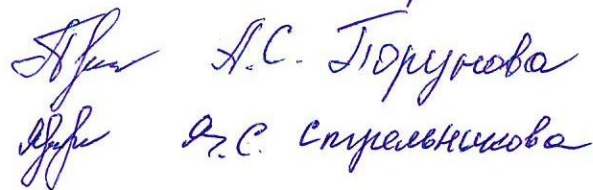 А.С. Порунова
Я.С. Стрельникова